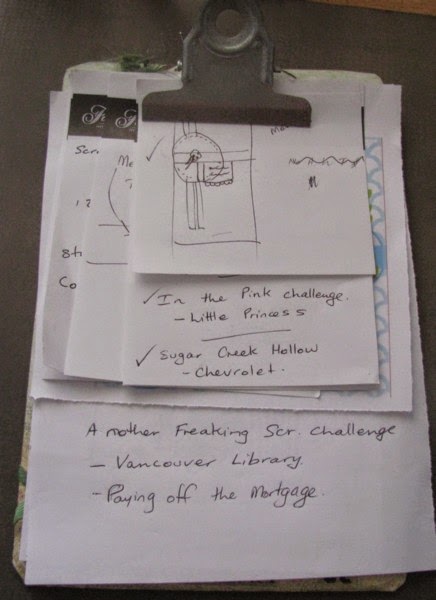 In the Pink challenge.
- Little Princess
Sugar Creek Hollow
- Chevrolet.
A nother Freaking Scr. Challenge
- Vancouver Library.
- Paying off the Mortgage.